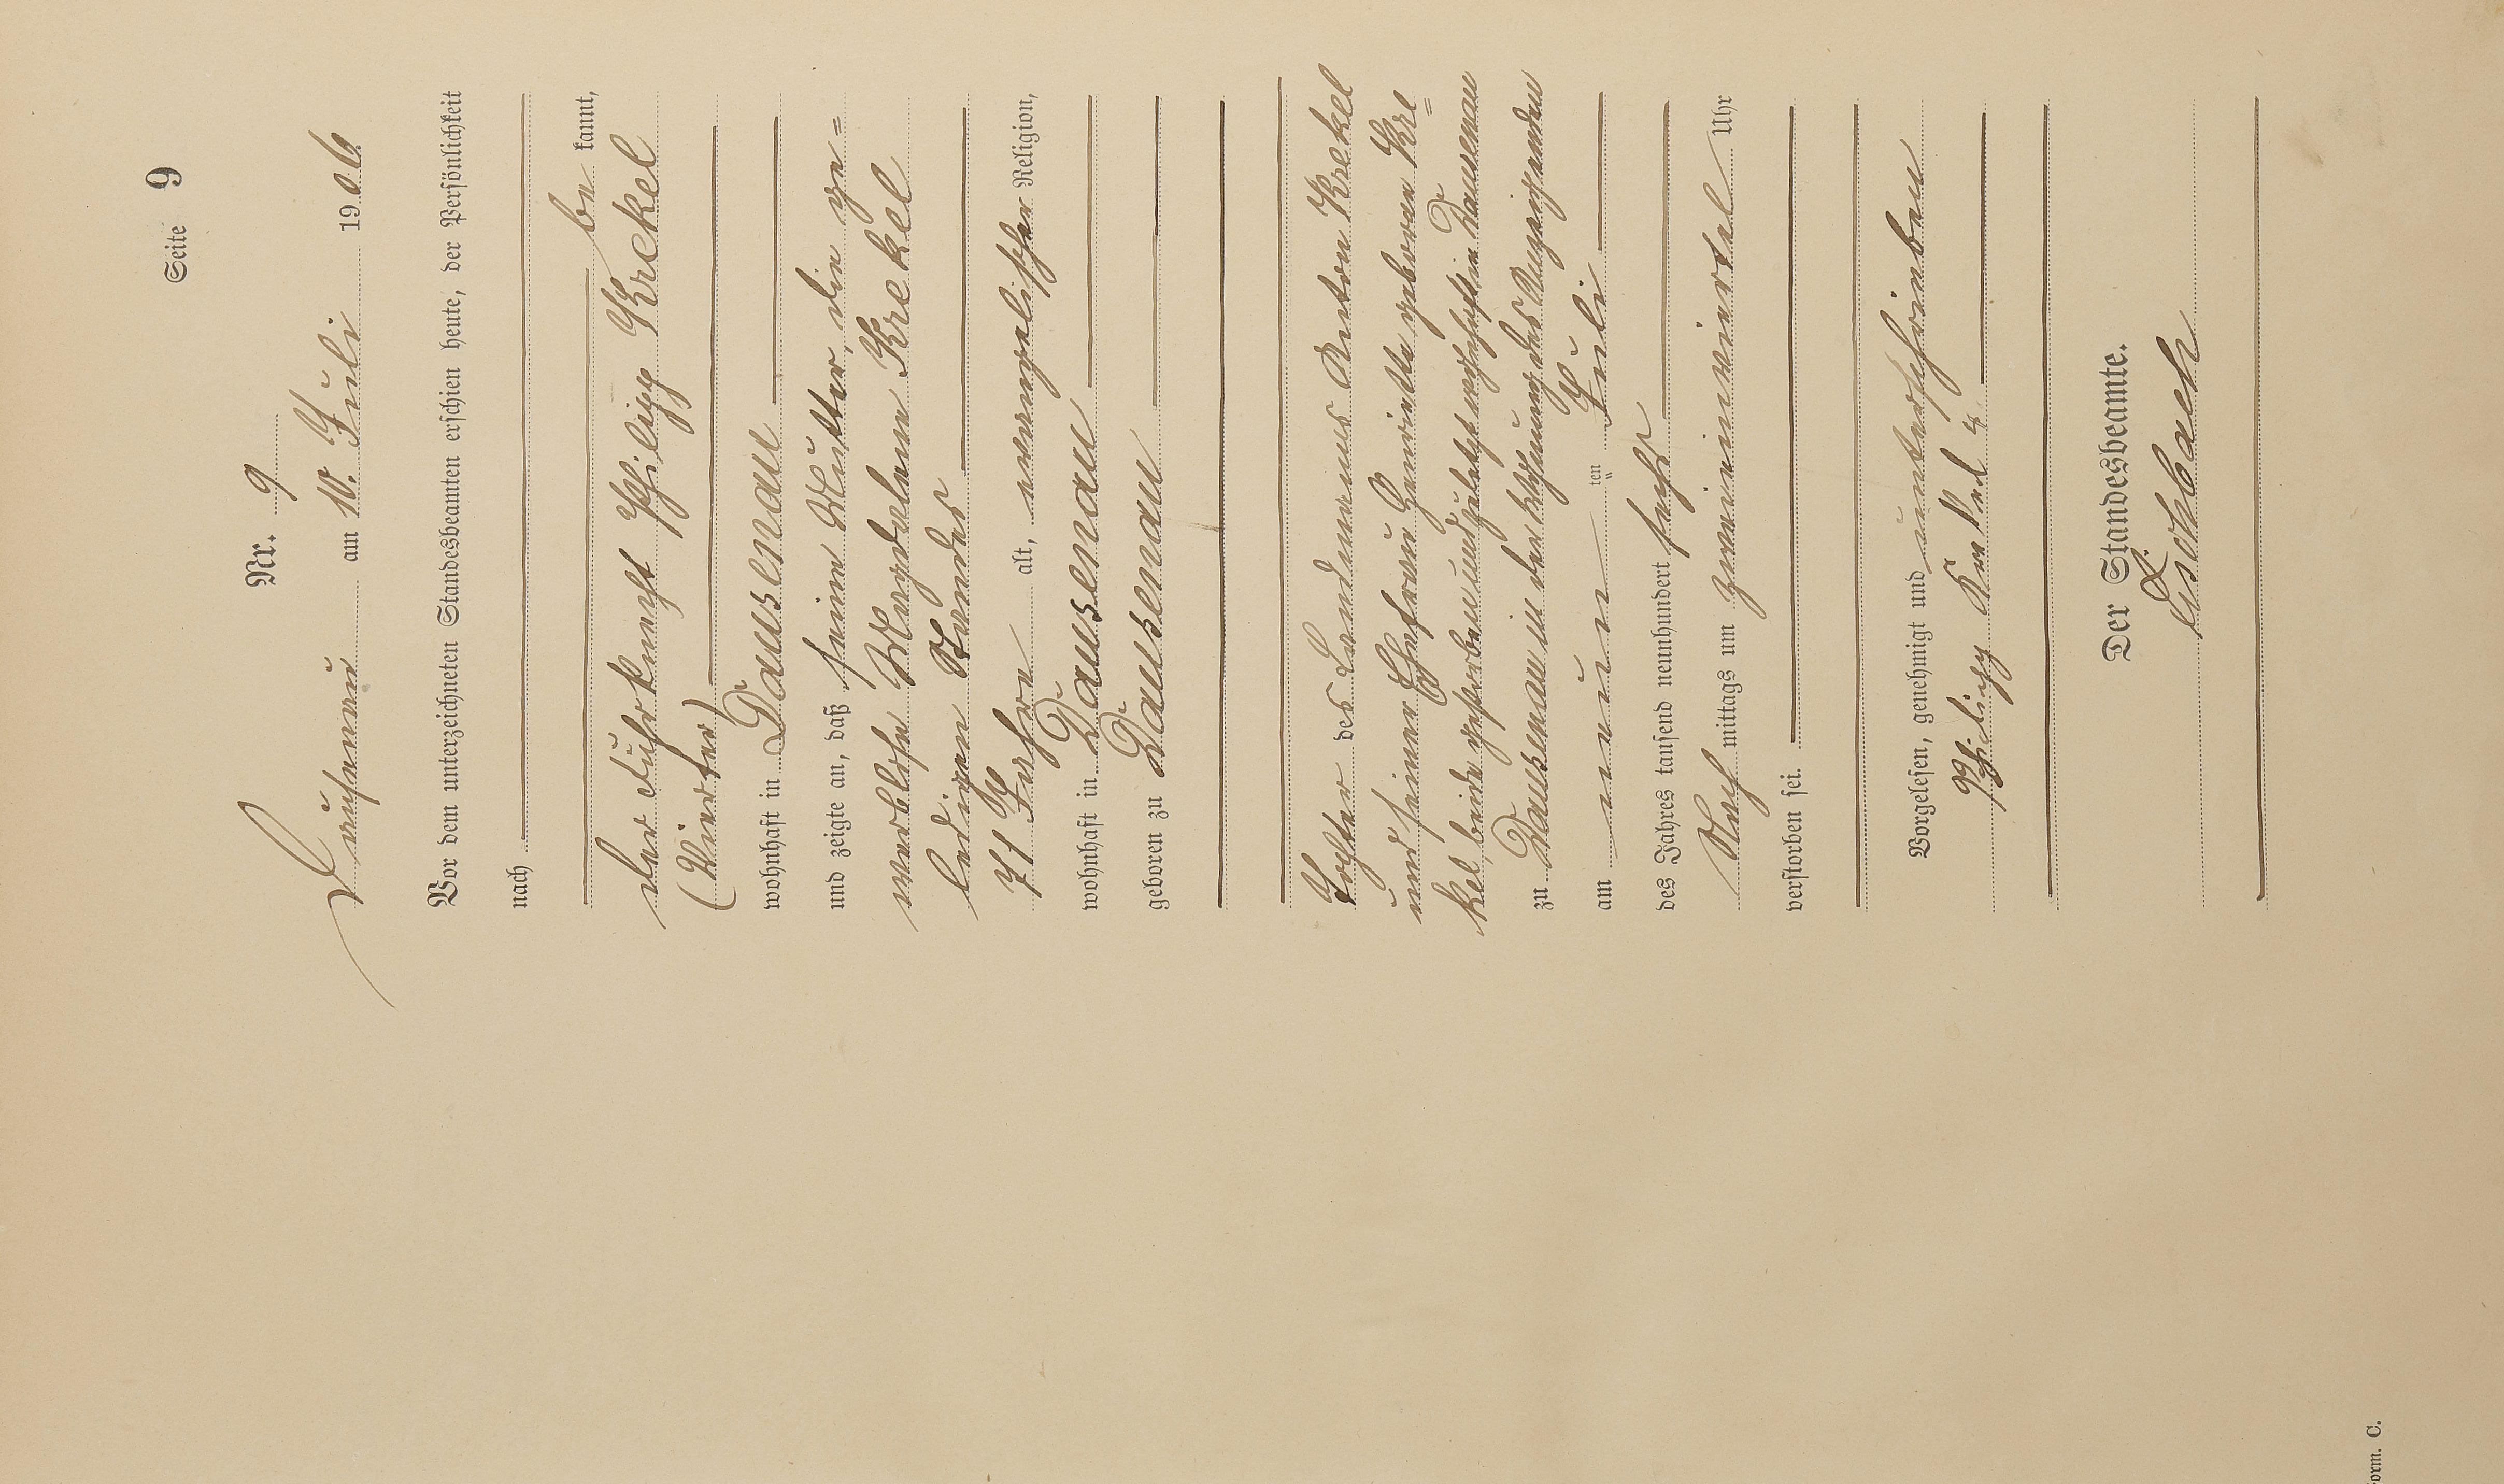 Seite 9
Nr. 9
Dausenau am 10. Juli 1906
Vor dem unterzeichneten Standesbeamten erschien heute, der Persönlichkeit
nach
be kannt,
der Fuhrknecht Philipp Krekel
(Vierter)
wohnhaft in Dausenau
und zeigte an, daß seine Mutter, die ge=
werblose Magdalene Krekel
ledigen Standes
71 Jahre alt, evangelischer Religion,
wohnhaft in Dausenau
geboren zu Dausenau
Tochter des Landmanns Anton Krekel
und seiner Ehefrau Henriette geborene Kre=
kel, beide gestorben und zuletzt wohnhaft in Dausenau
zu Dausenau in der Wohnung des Anzeigenden
am neun ten Juli
des Jahres tausend neunhundert sechs
Nach mittags um zweieinviertel Uhr
verstorben sei.
Vorgelesen, genehmigt und unterschrieben
Philipp Krekel 4.
Der Standesbeamte.
orm. C.